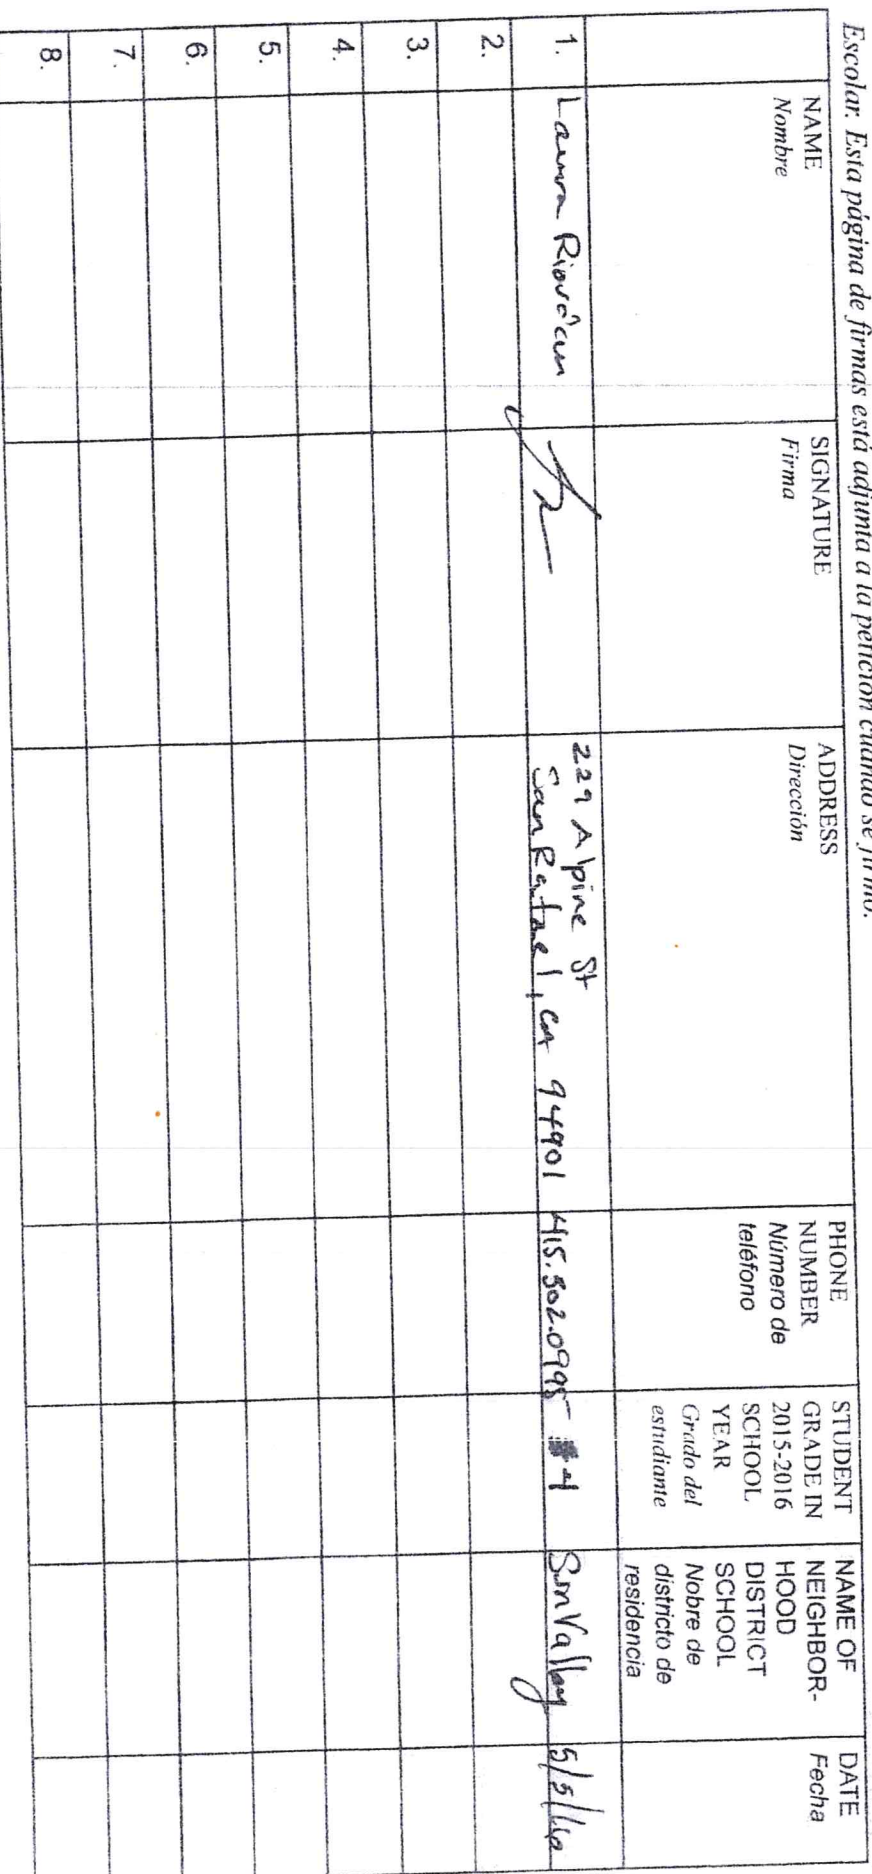 Escolar. Esta página de firmas está adjunta a la petición cuando se firmó.
NAME
Nombre
SIGNATURE
Firma
ADDRESS
Dirección
PHONE
NUMBER
Número de
teléfono
STUDENT
GRADE IN
2015-2016
SCHOOL
YEAR
Grado del
estudiante
NAME OF
NEIGHBOR-
HOOD
DISTRICT
SCHOOL
Nobre de
districto de
residencia
DATE
Fecha
1. Laura Riordan
229 Alpine St
San Rafael, CA 94901
415.302.0995
4
Sun Valley
5/5/16
2.
3.
4.
5.
6.
7.
8.